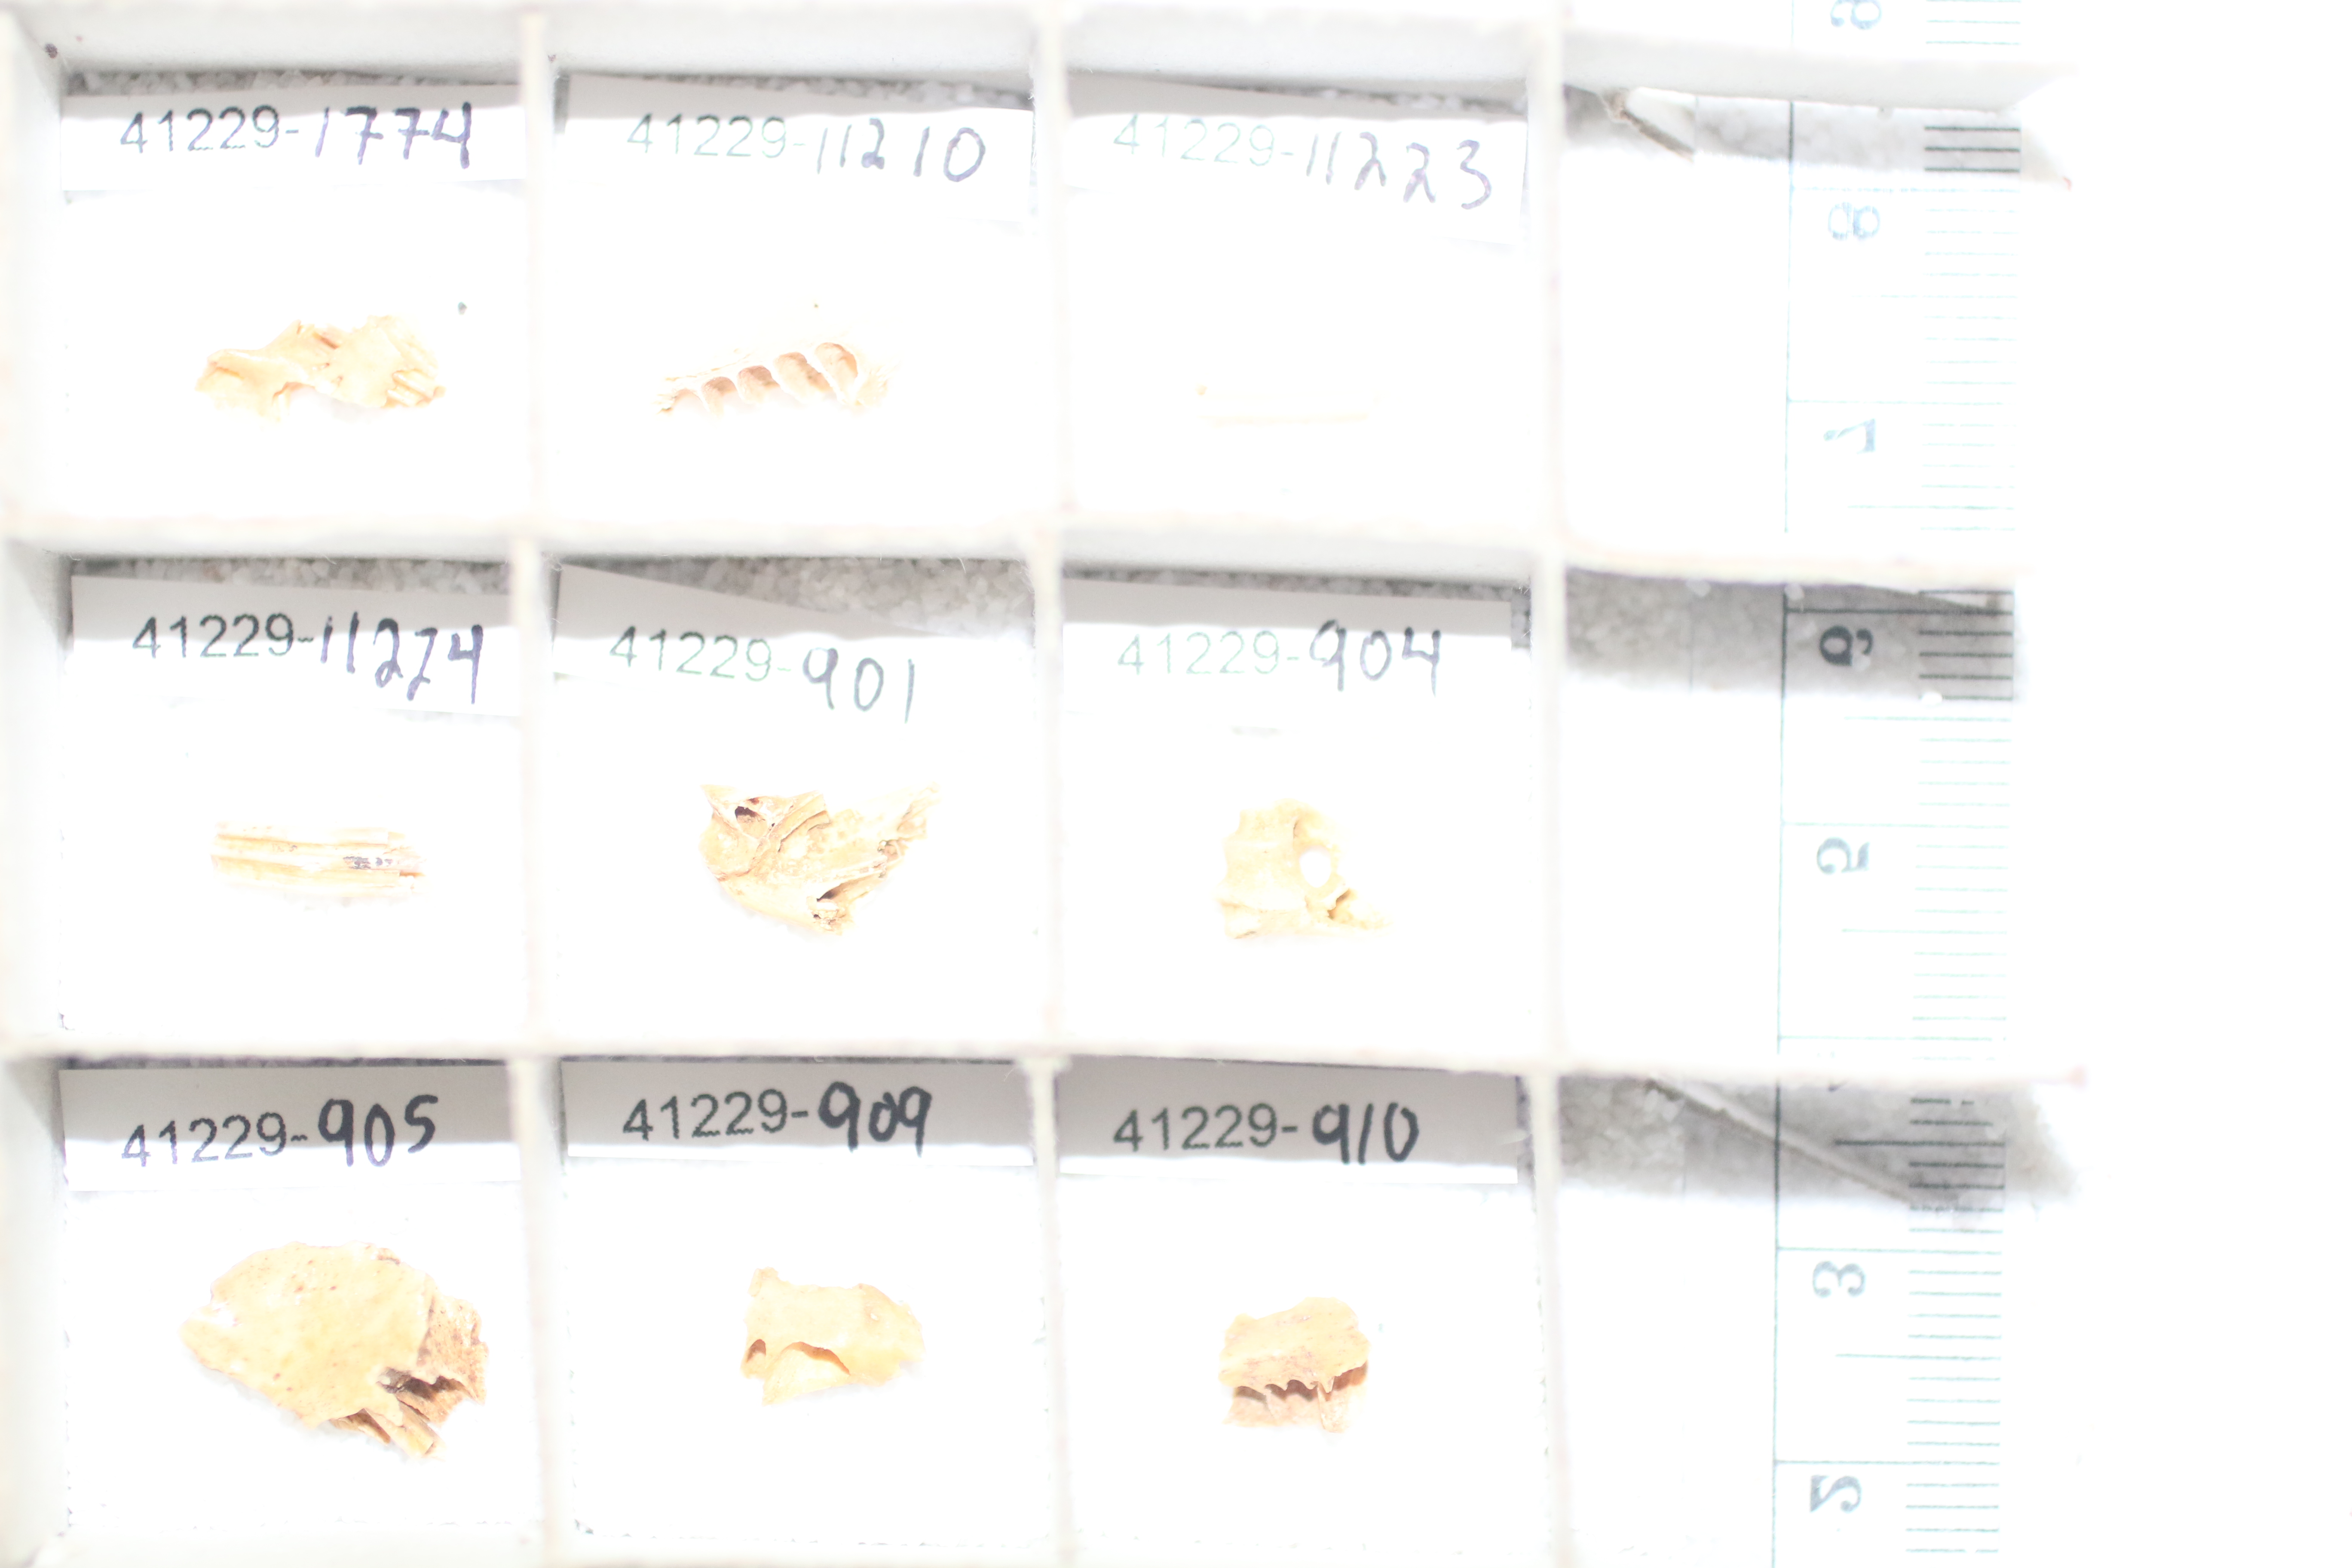 41229-1774
41229-11210
41229-11223
41229-11274
41229-901
41229-904
41229-905
41229-909
41229-910
8
7
6
5
3
2